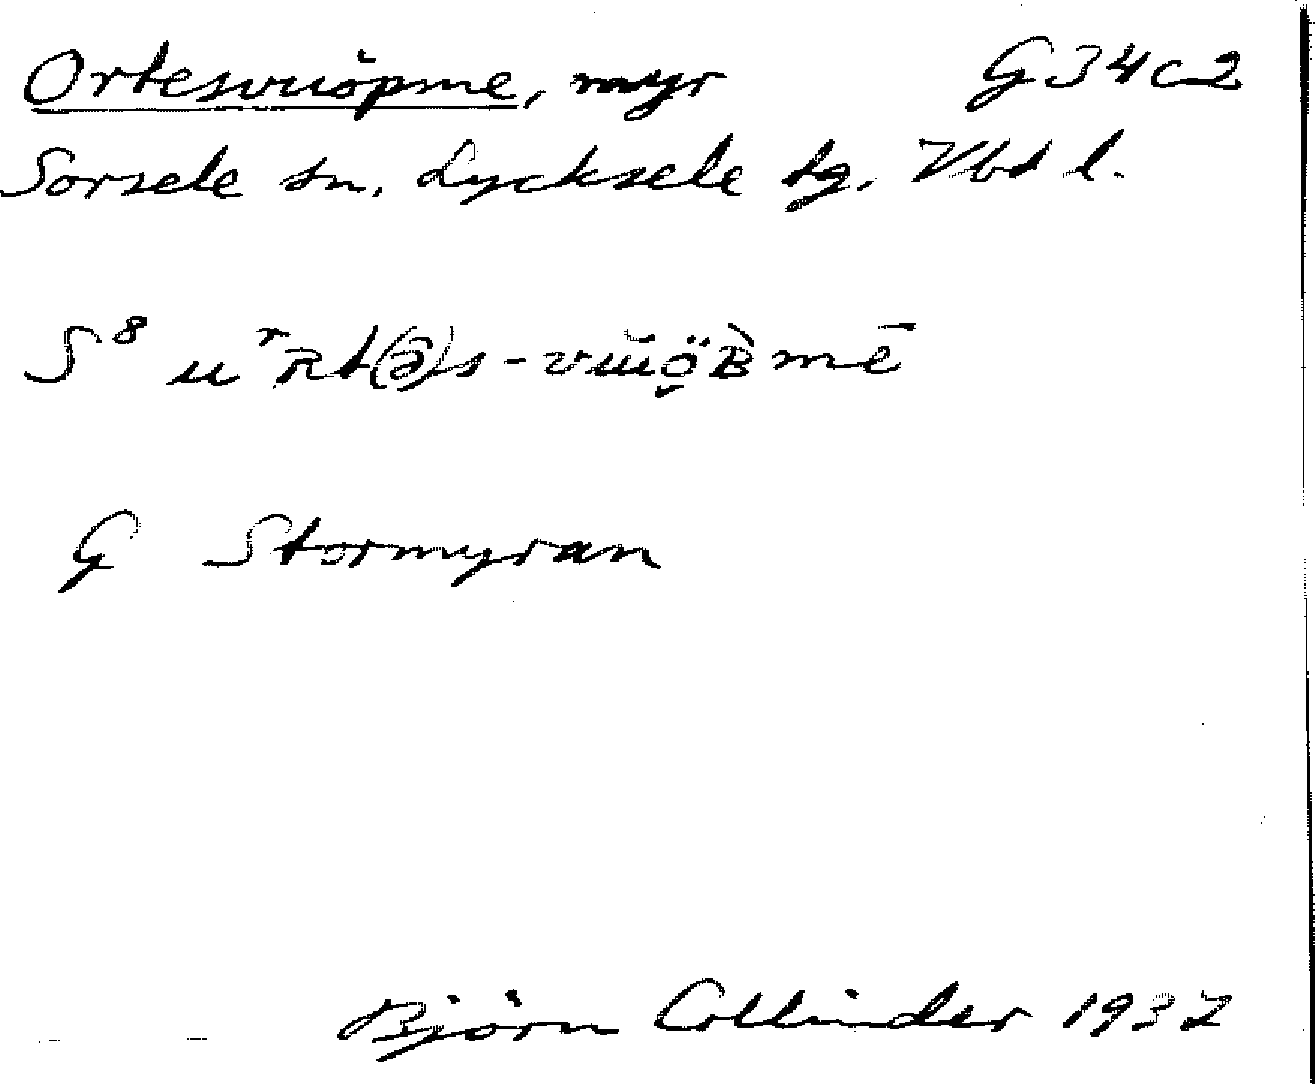 Ortesvuöpme, myr G34c2
Sorsele sn. Lycksele tg. Vbt l.
S⁸
G Stormyran
Björn Collinder 1937